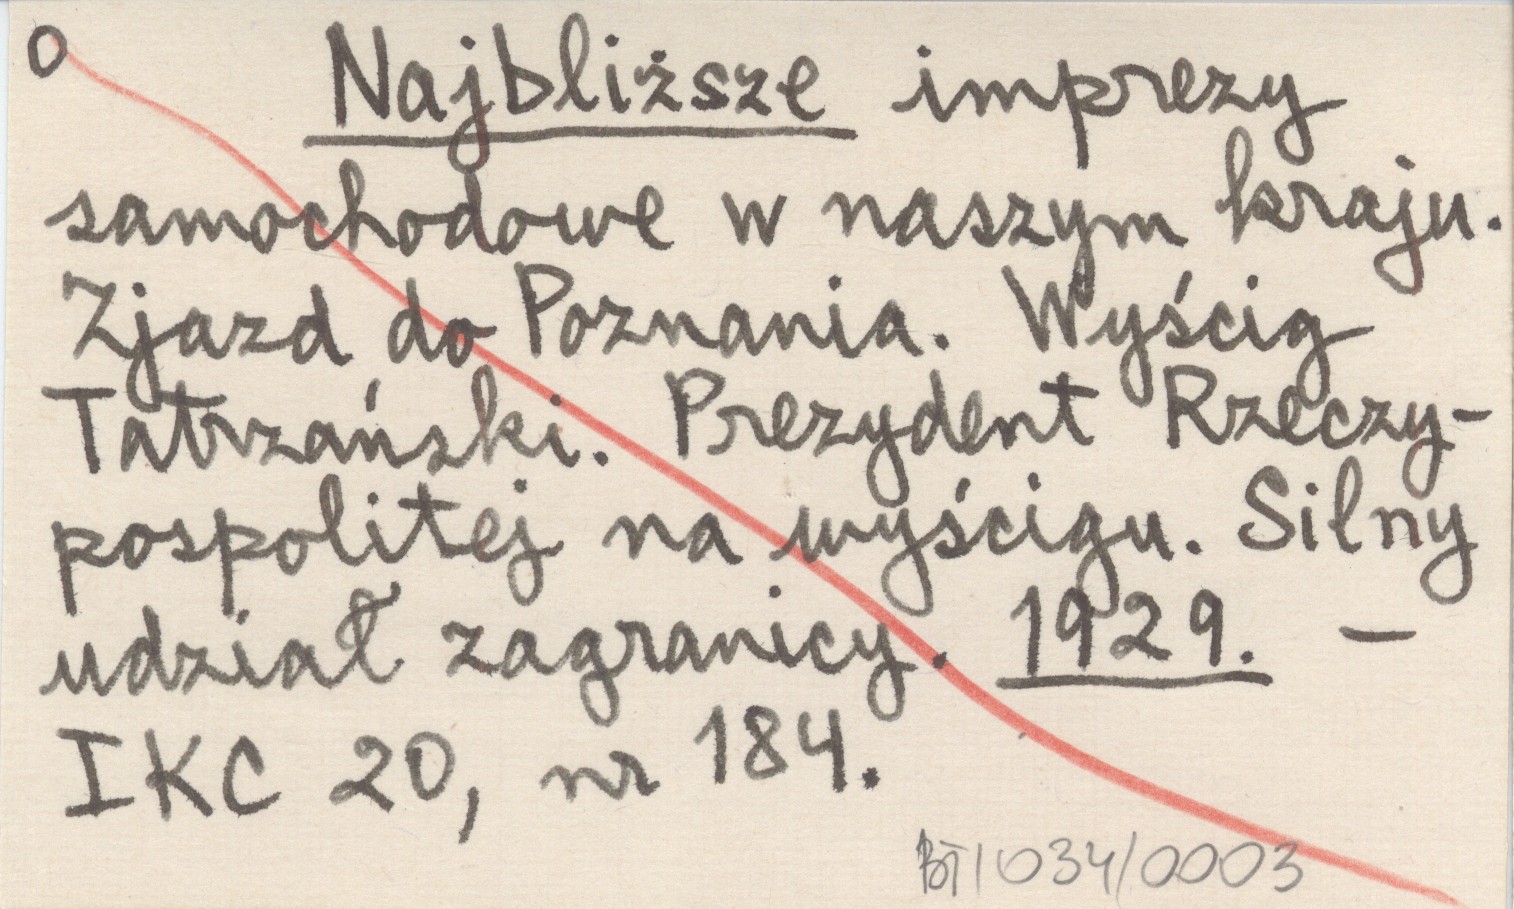 O Najbliższe imprezy
samochodowe w naszym kraju.
Zjazd do Poznania. Wyścig
Tatrzański. Prezydent Rzeczy-
pospolitej na wyścigu. Silny
udział zagranicy. 1929. —
IKC 20, nr 184.
BT/034/0003